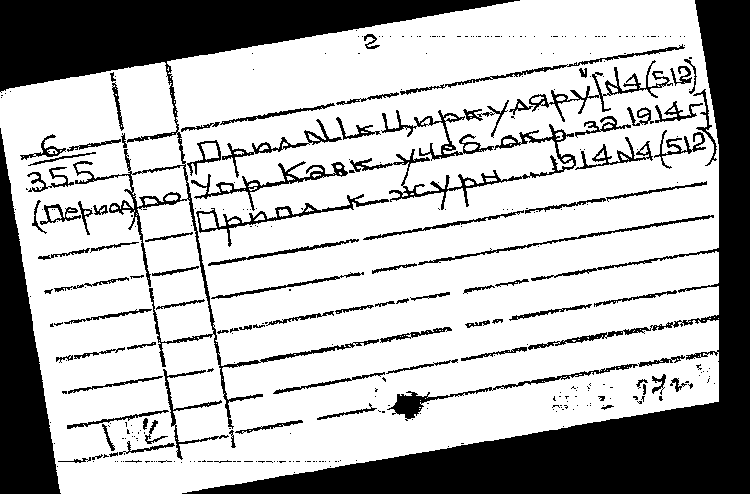 2
6
355
(Период)
по
Прил N1 к Циркуляру" [N4(512)
"Упр Кавк учеб окр за 1914 г.]
Прилл к журн. 1914 N4 (512)
37г